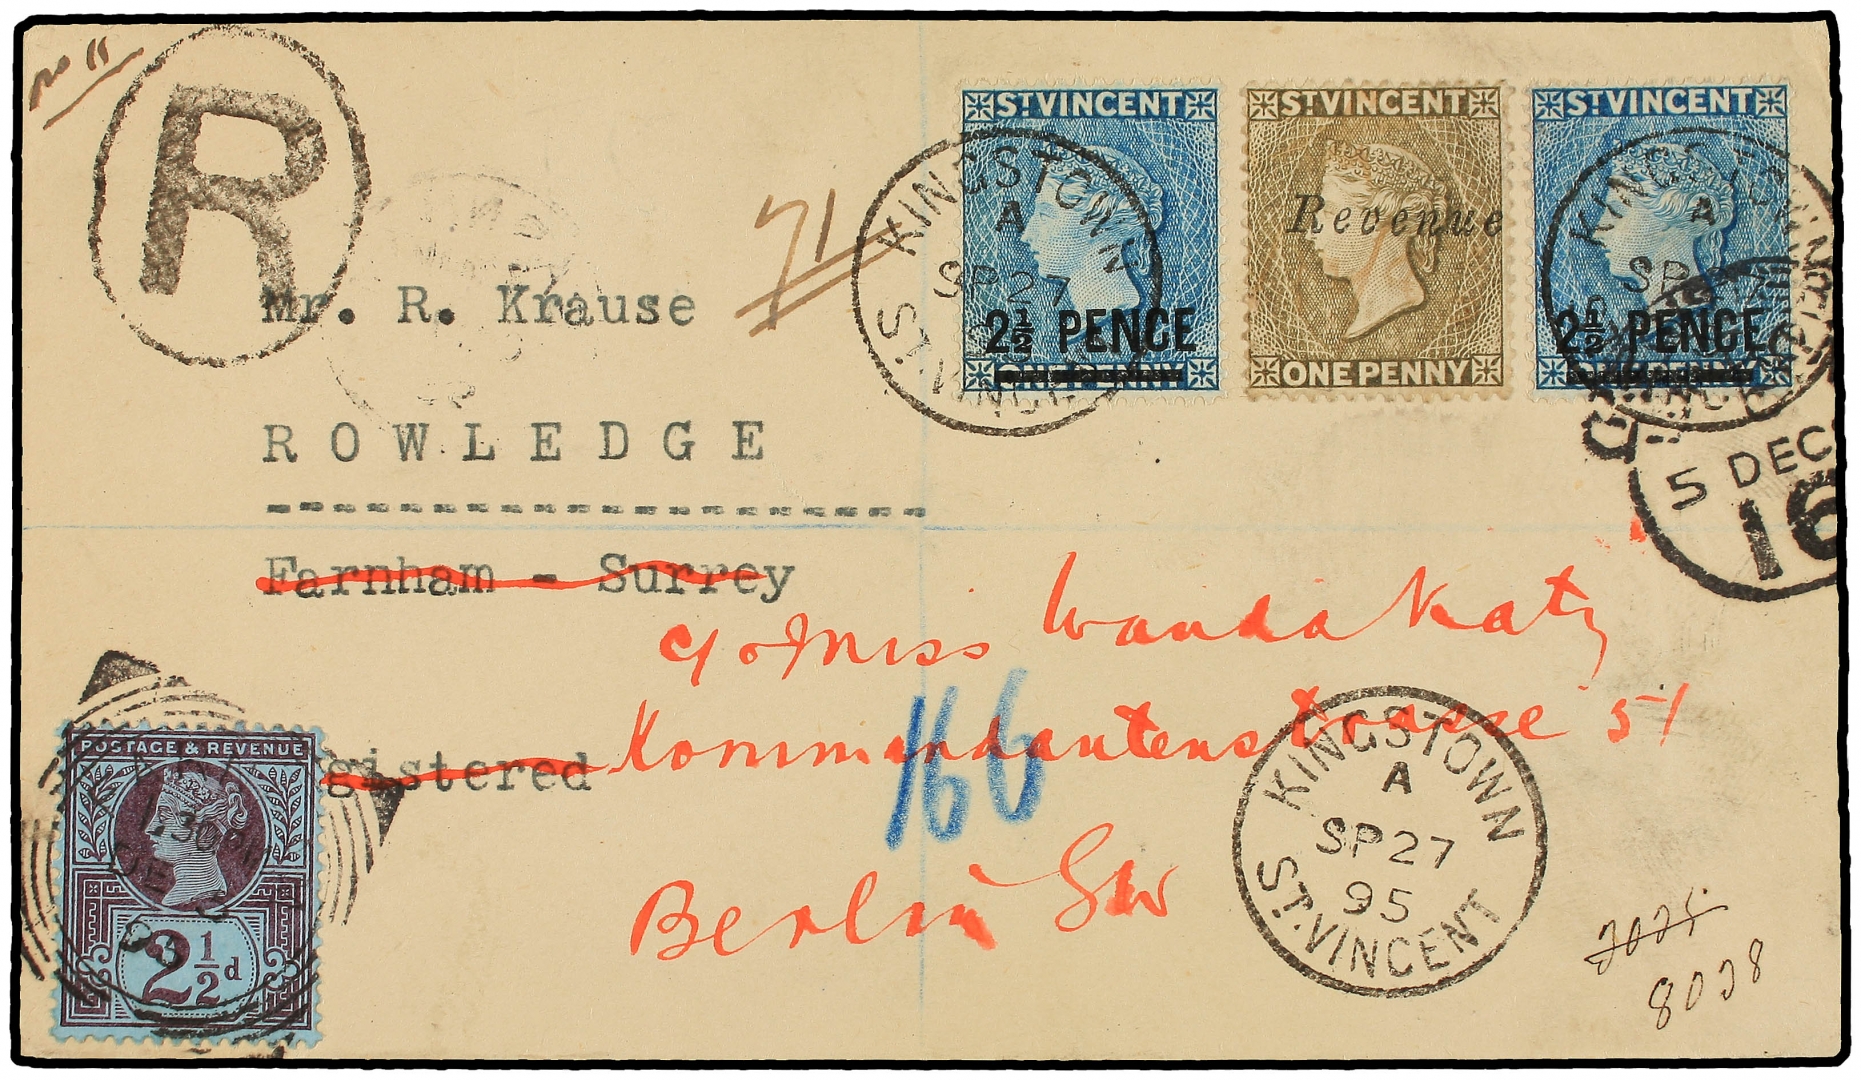 No 11
R
ST VINCENT
ST VINCENT
Revenue
ST VINCENT
2½ PENCE
ONE PENNY
ONE PENNY
2½ PENCE
ONE PENNY
KINGSTOWN
A
SP 27
ST. VINCENT
KINGSTOWN
A
SP 27
71
Mr. R. Krause
ROWLEDGE
5 DEC
16
Farnham - Surrey
c/o Miss Wanda Katz
Kommandantenstrasse 51
gistered
166
Berlin SW
POSTAGE & REVENUE
1.30PM
DE
95
2½d
KINGSTOWN
A
SP 27
95
ST. VINCENT
8028